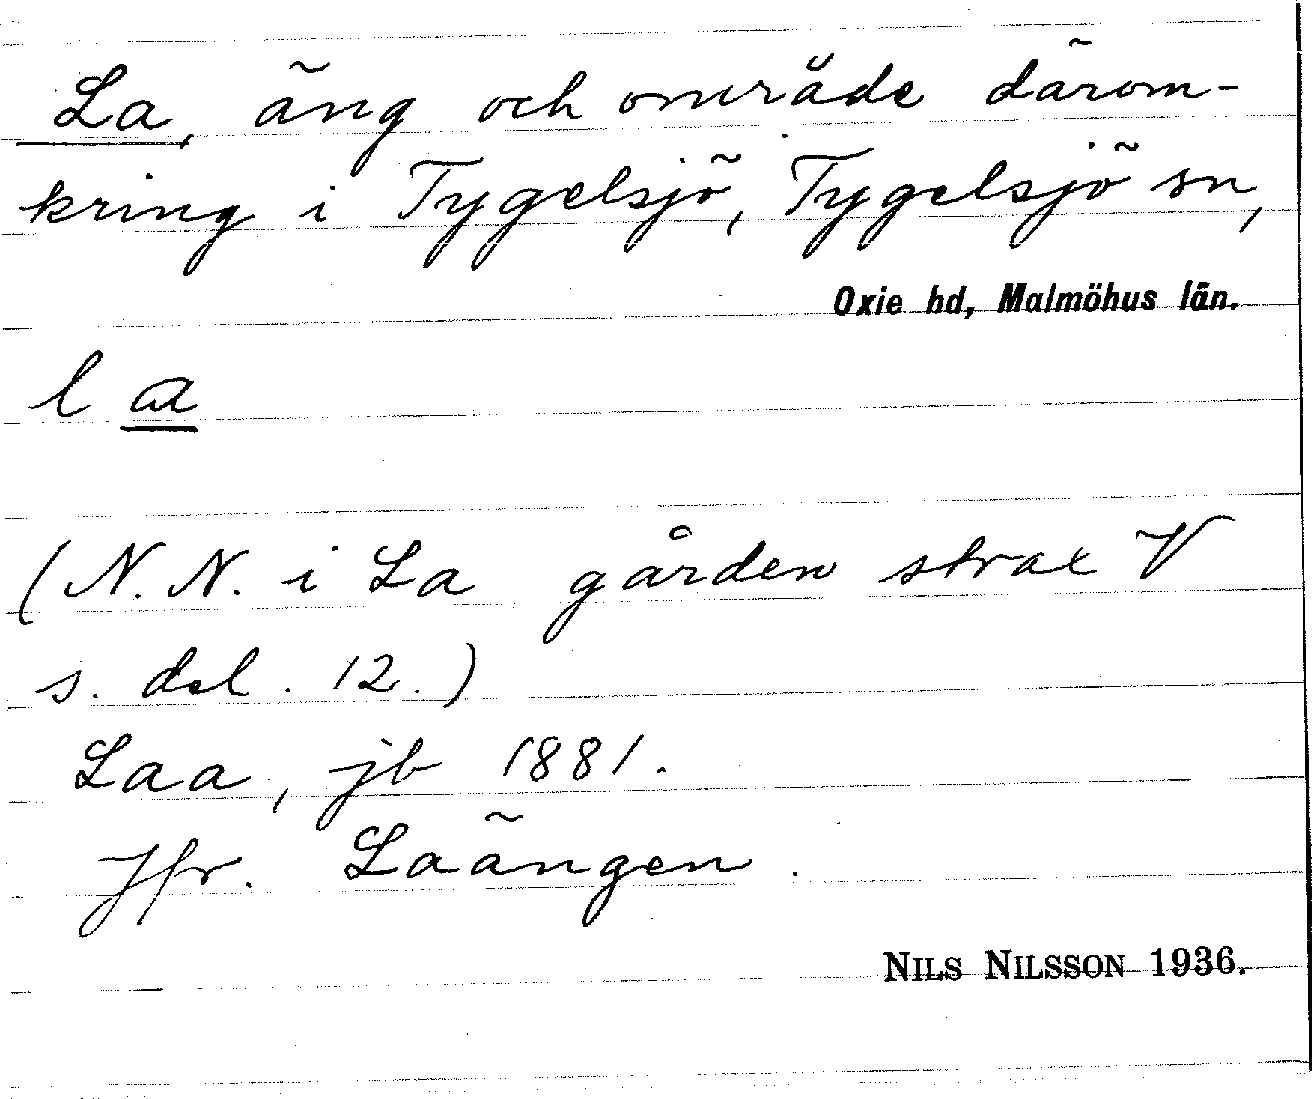 La, äng och område därom-
kring i Tygelsjö, Tygelsjö sn,
Oxie hd, Malmöhus län.
l a
(N. N. i La gården strax V
s. del. 12.)
Laa, jb 1881.
Jfr. Laängen.
NILS NILSSON 1936.